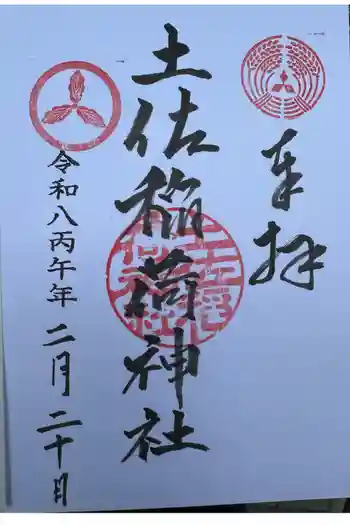 奉拝
土佐稲荷神社
令和八丙午年 二月 二十日